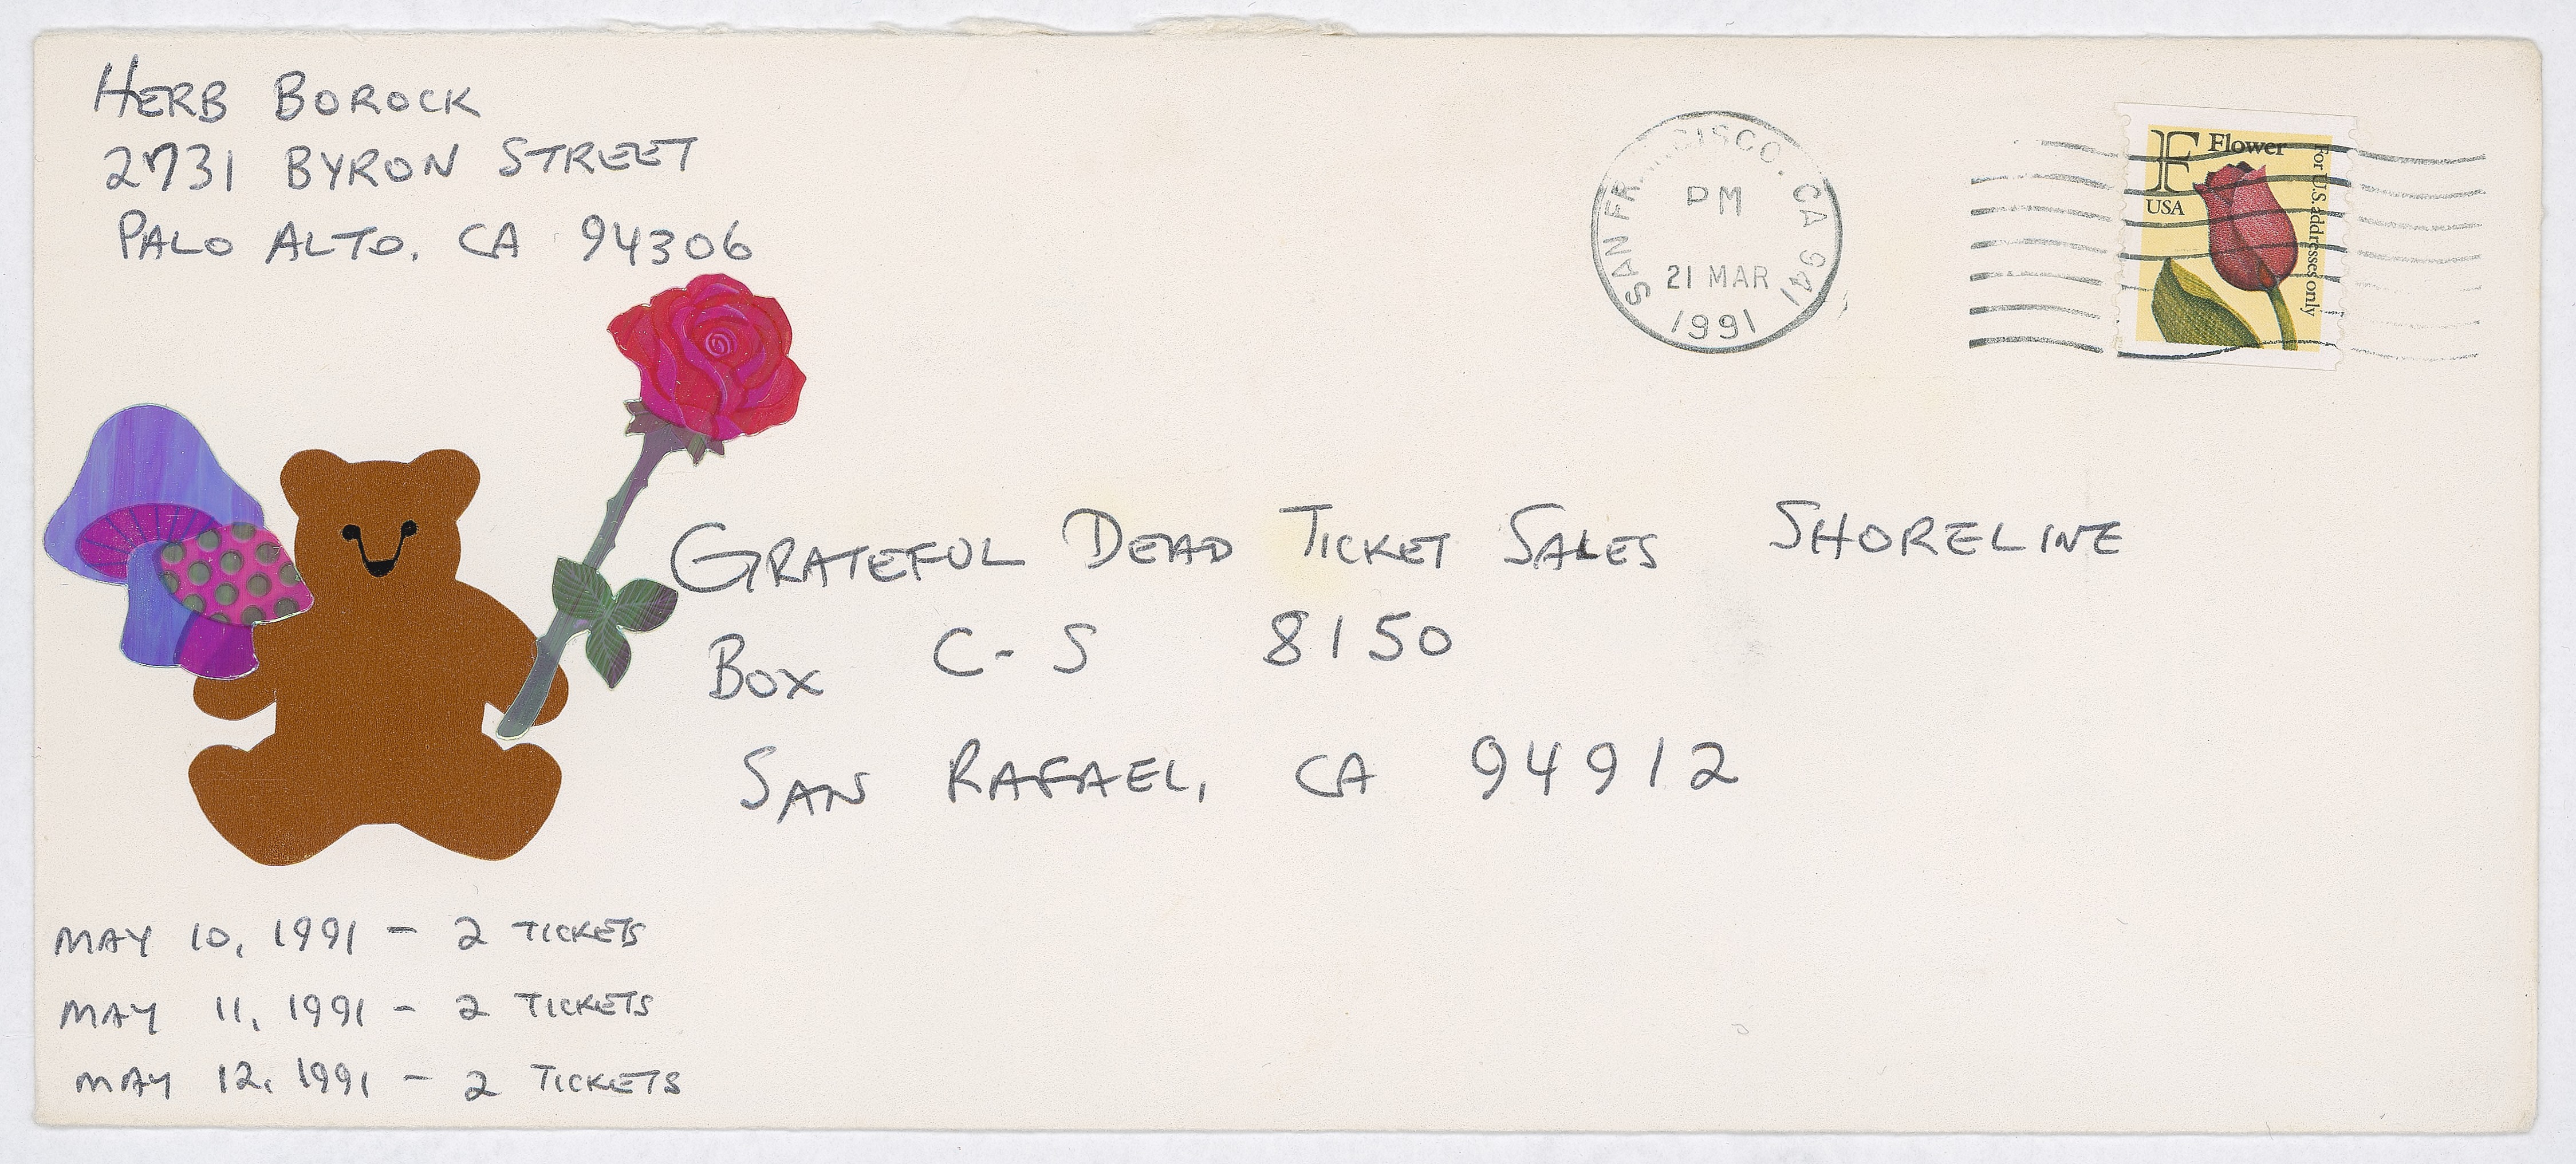 HERB BOROCK
2731 BYRON STREET
PALO ALTO, CA 94306
SAN FRANCISCO, CA 941
PM
21 MAR
1991
F Flower
USA
For U.S. addresses only
GRATEFUL DEAD TICKET SALES SHORELINE
BOX C-S 8150
SAN RAFAEL, CA 94912
MAY 10, 1991 - 2 TICKETS
MAY 11, 1991 - 2 TICKETS
MAY 12, 1991 - 2 TICKETS